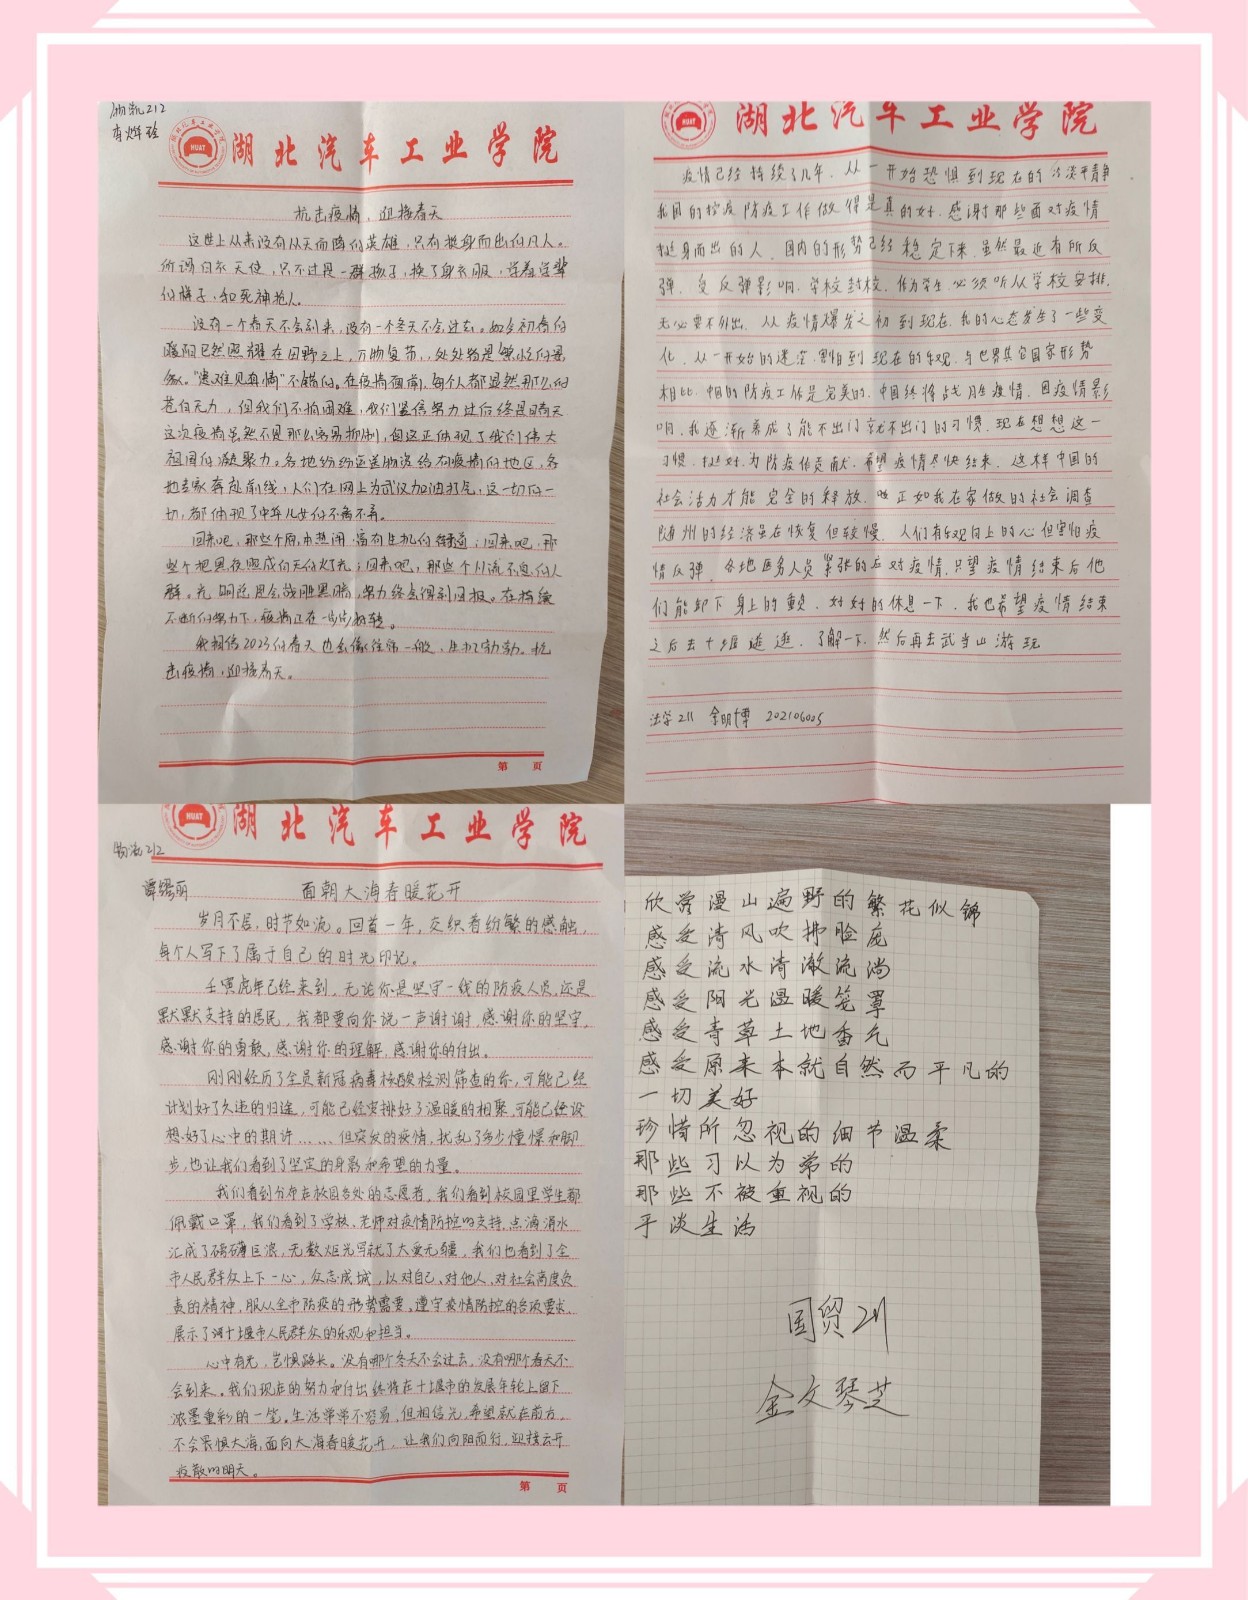 物流212
湖北汽车工业学院
抗击疫情，迎接春天
这世上从来没有从天而降的英雄，只有挺身而出的凡人。
所谓白衣天使，只不过是一群孩子，换了身衣服，学着前辈
的样子，和死神抢人。
没有一个春天不会到来，没有一个冬天不会过去。如今初春的
暖阳已然照耀在田野之上，万物复苏，处处皆是繁忙的景
象。"患难见真情"不错的。在疫情面前，每个人都显然那么的
苍白无力，但我们不怕困难，我们坚信努力过后终是春天
这次疫情虽然不是那么容易抑制，但这正体现了我们伟大
祖国的凝聚力。各地纷纷运送物资给有疫情的地区，各
地专家奔赴前线，人们在网上为武汉加油打气，这一切的一
切，都体现了中华儿女的不离不弃。
回来吧，那些个闹市热闹、富有生机的街道；回来吧，那
些个把黑夜照成白天的灯光；回来吧，那些个川流不息的人
群。光明总是会战胜黑暗，努力终会得到回报。在持续
不断的努力下，疫情正在一步步好转。
我相信2023的春天也会像往常一般，生机勃勃。抗
击疫情，迎接春天。
第 页
湖北汽车工业学院
疫情已经持续了几年，从一开始恐惧到现在的冷淡平静
我国的控疫防疫工作做得是真的好，感谢那些面对疫情
挺身而出的人，国内的形势已经稳定下来，虽然最近有所反
弹，受反弹影响，学校封校，作为学生必须听从学校安排，
无必要不外出，从疫情爆发之初到现在，我的心态发生了一些变
化，从一开始的迷茫，害怕到现在的乐观，与世界其它国家形势
相比，中国的防疫工作是完美的，中国终将战胜疫情，因疫情影
响，我逐渐养成了能不出门就不出门的习惯，现在想想这一
习惯，挺好，为防疫作贡献，希望疫情尽快结束，这样中国的
社会活力才能完全的释放，正如我在家做的社会调查
随州的经济虽在恢复但较慢，人们有乐观向上的心但害怕疫
情反弹，各地医务人员紧张的应对疫情，只望疫情结束后他
们能卸下身上的重负，好好的休息一下，我也希望疫情结束
之后去十堰逛逛，了解一下，然后再去武当山游玩
法学211 余明博 202106005
湖北汽车工业学院
物流212
谭缪丽 面朝大海春暖花开
岁月不居，时节如流。回首一年，交织着纷繁的感触，
每个人写下了属于自己的时光印记。
壬寅虎年已经来到，无论你是坚守一线的防疫人员，还是
默默支持的居民，我都要向你说一声谢谢，感谢你的坚守，
感谢你的勇敢，感谢你的理解，感谢你的付出。
刚刚经历了全员新冠病毒核酸检测筛查的你，可能已经
计划好了久违的归途，可能已经安排好了温暖的相聚，可能已经设
想好了心中的期许……但突发的疫情，扰乱了多少憧憬和脚
步，也让我们看到了坚定的身影和希望的力量。
我们看到分布在校园各处的志愿者，我们看到校园里学生都
佩戴口罩，我们看到了学校、老师对疫情防控的支持，点滴涓水
汇成了磅礴巨浪，无数炬光写就了大爱无疆，我们也看到了全
市人民群众上下一心，众志成城，以对自己、对他人、对社会高度负
责的精神，服从全市防疫的形势需要，遵守疫情防控的各项要求，
展示了湖十堰市人民群众的乐观和担当。
心中有光，岂惧路长。没有哪个冬天不会过去，没有哪个春天不
会到来。我们现在的努力和付出终将在十堰市的发展年轮上留下
浓墨重彩的一笔。生活常常不容易，但相信光，希望就在前方，
不会畏惧大海，面向大海春暖花开，让我们向阳而行，迎接云开
疫散的明天。
第 页
欣赏漫山遍野的繁花似锦
感受清风吹拂脸庞
感受流水清澈流淌
感受阳光温暖笼罩
感受青草土地香气
感受原来本就自然而平凡的
一切美好
珍惜所忽视的细节温柔
那些习以为常的
那些不被重视的
平淡生活
国贸211
金文琴芝